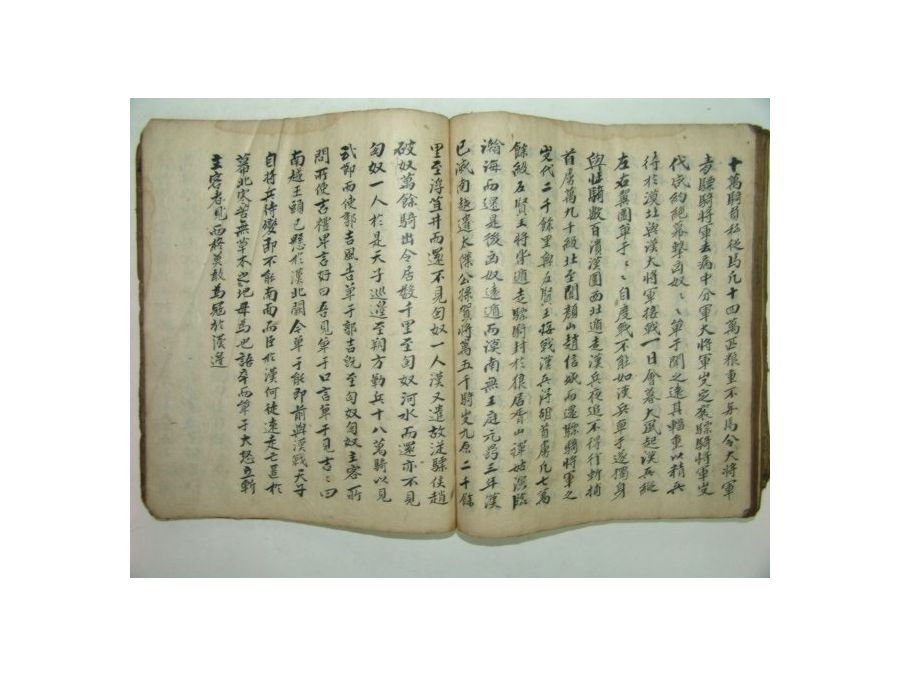 十萬騎負私從馬凡十四萬匹粮重不与焉令大將軍
青驃騎將軍去病中分軍大將軍出定襄驃騎將軍出
代咸約絕幕擊匈奴〻〻單于聞之遠其輜重以精兵
待於漠北與漢大將軍接戰一日會暮大風起漢兵縱
左右翼圍單于〻〻自度戰不能如漢兵單于遂獨身
與壯騎數百潰漢圍西北遁走漢兵夜追不得行斬捕
首虜萬九千級北至闐顏山趙信城而還驃騎將軍之
出代二千餘里與左賢王接戰漢兵得胡首虜凡七萬
餘級左賢王將皆遁走驃騎封於狼居胥山禪姑溟臨
瀚海而還是後匈奴遠遁而漠南無王庭元鼎三年漢
已滅南越遣太僕公孫賀將萬五千騎出九原二十餘
里至浮苴井而還不見匈奴一人漢又遣故從驃侯趙
破奴萬餘騎出令居數千里至匈奴河水而還亦不見
匈奴一人於是天子巡邊至朔方勒兵十八萬騎以見
武節而使郭吉風告單于郭吉旣至匈奴匈奴主客所
問所使吉禮卑言好曰吾見單于口言單于見吉〻曰
南越王頭已懸於漢北闕令單于能卽前與漢戰天子
自將兵待邊卽不能南面而臣於漢何徒遠走亡匿於
幕北寒苦無草木之地毋爲也語卒而單于大怒立斬
主客者見而終莫敢爲寇於漢邊